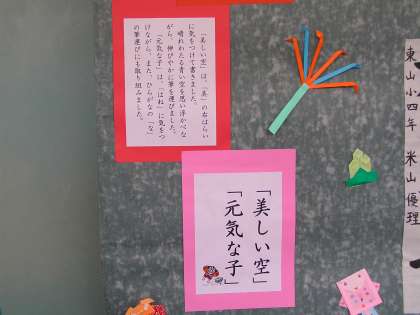 「美しい空」は、「美」の右ばらい
に気をつけて書きました。
晴れわたる青い空を思い浮かべな
がら、伸びやかに筆を運びました。
「元気な子」は、「はね」に気をつ
けながら、また、ひらがなの「な」
の筆運びにも取り組みました。
「美しい空」
「元気な子」
東山小四年 米山優理